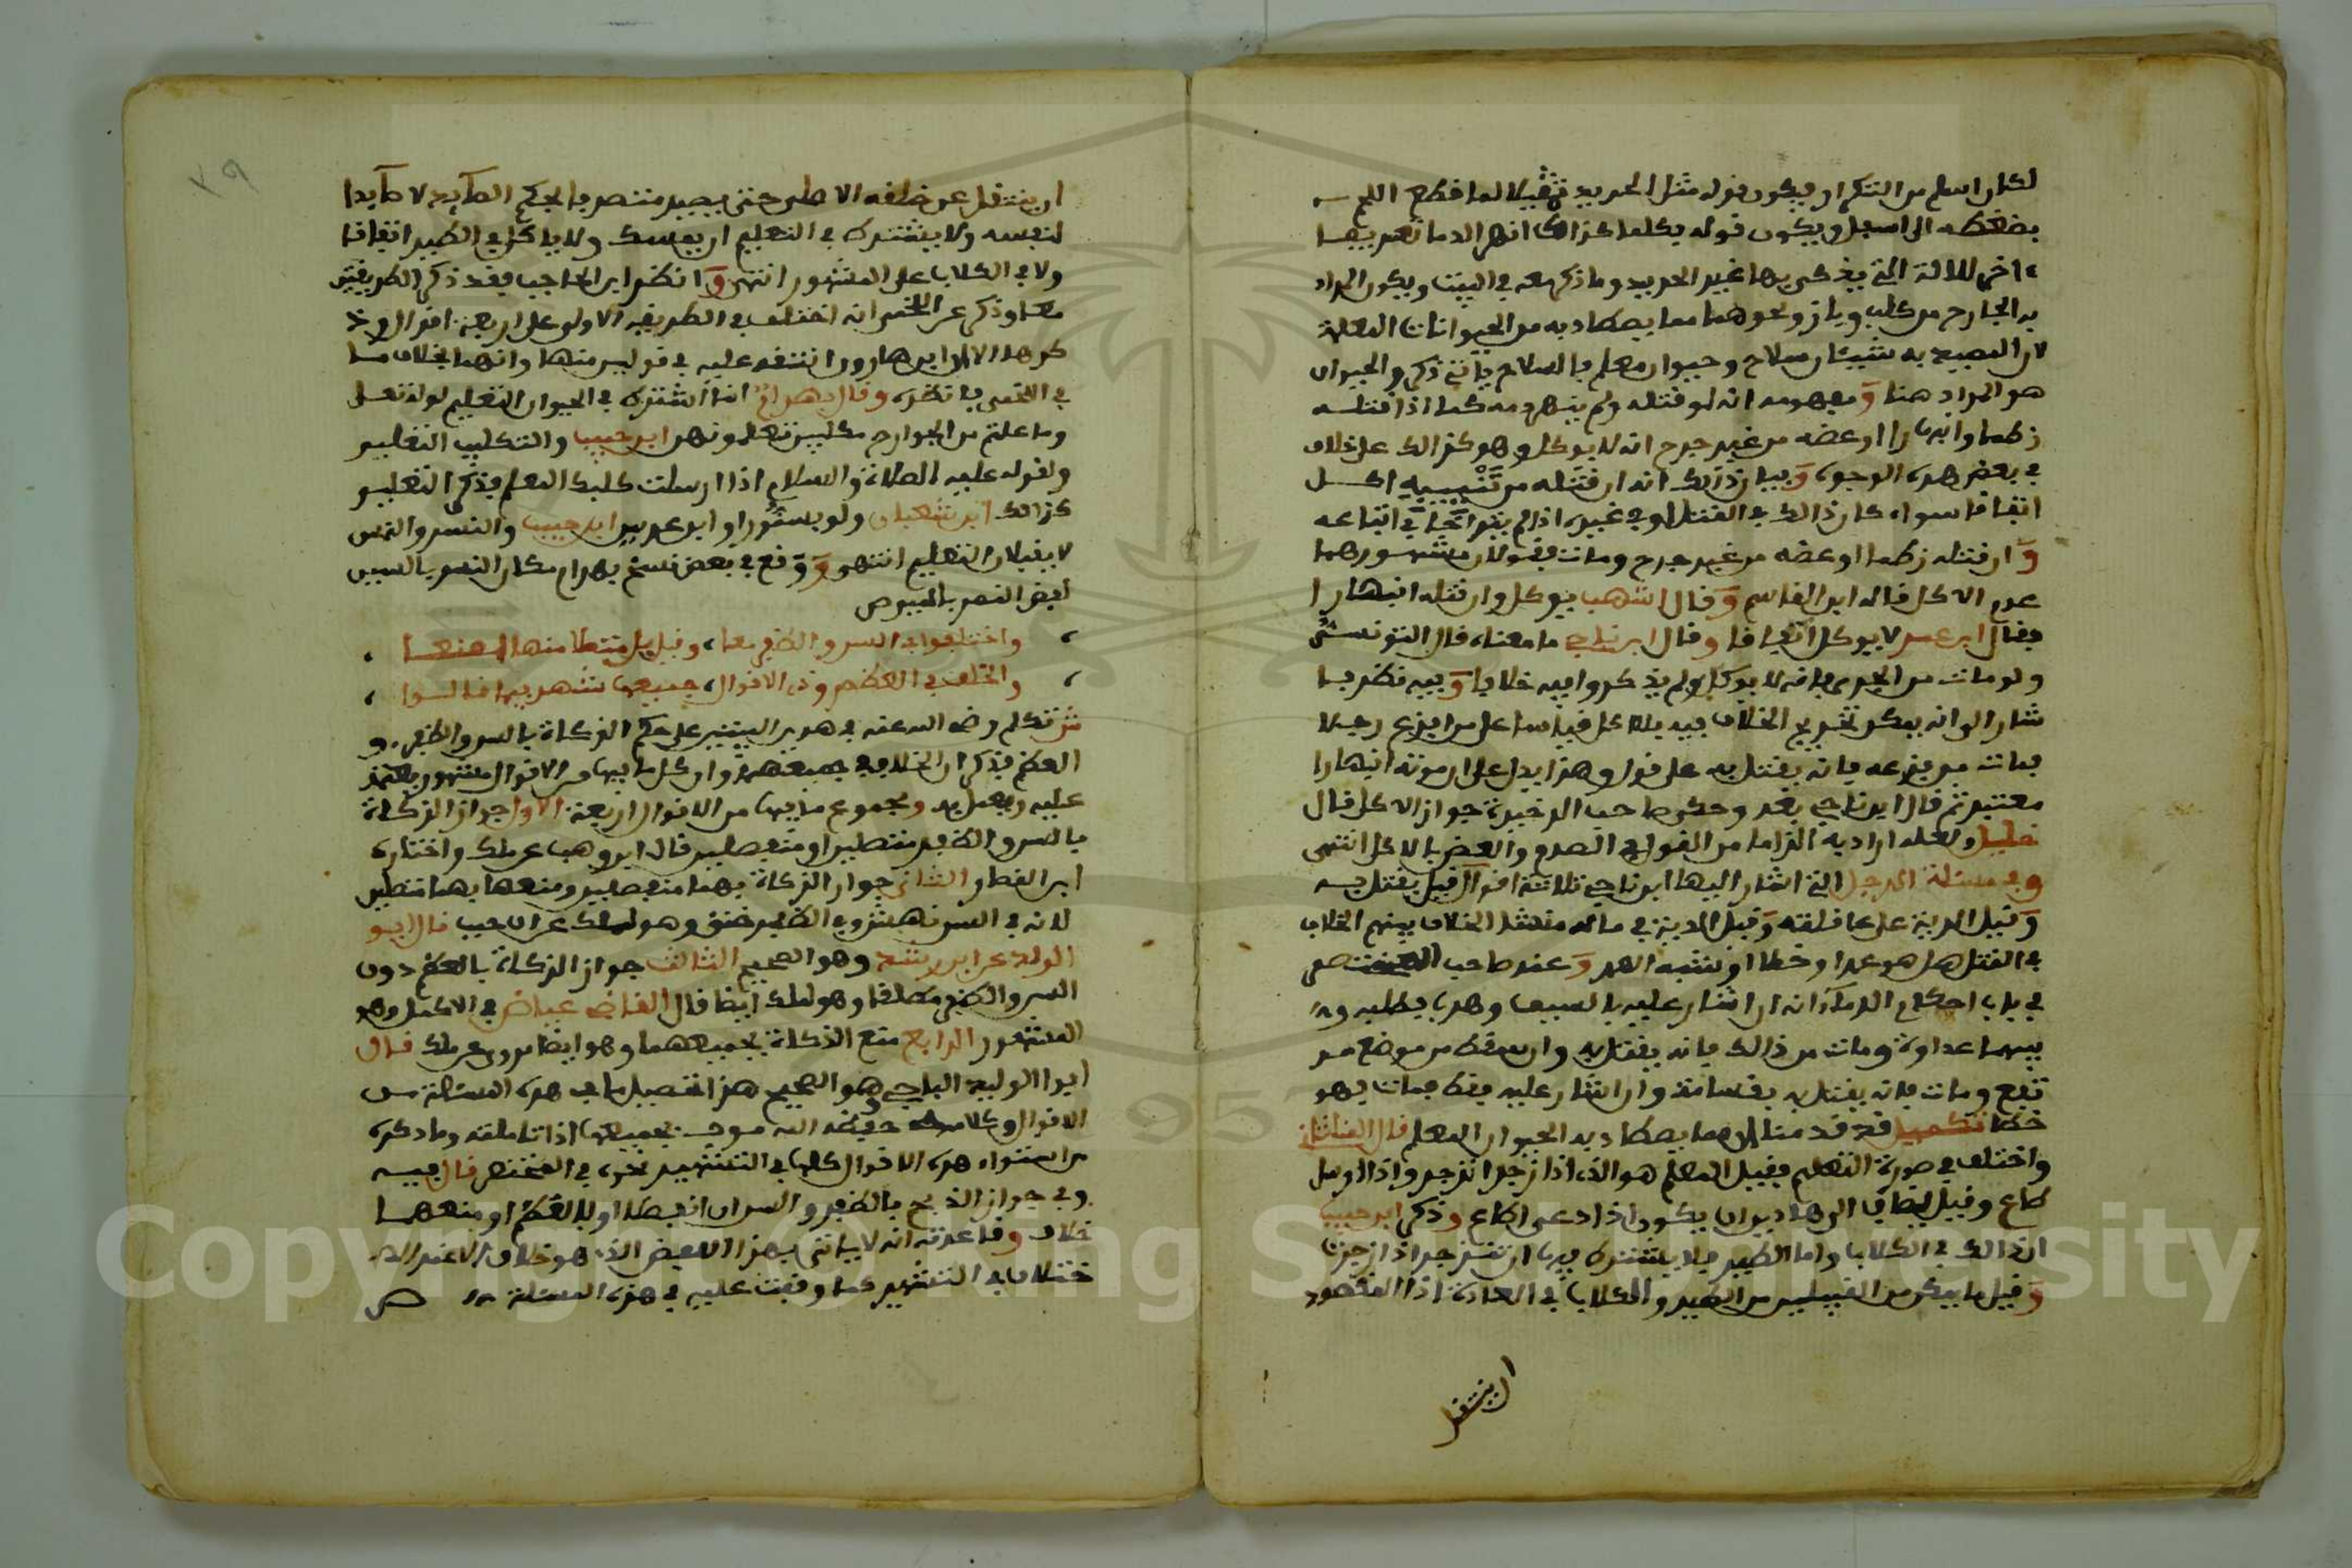 لكان اسلم من التكرار ويكون قوله مثل الحديد تمثيلا لما قطع اللحم
بضغطه الى اسفل ويكون قوله بكلما كذاك انهر الدما تعريفا
اخر للالة التي يذكى بها غير الحديد وما ذكر معه في البيت ويكون المراد
به الجارح من كلب وباز ونحوهما مما يصطاد به من الحيوانات المعلمة
لان المصيد به شيئان سلاح وحيوان معلم بالسلاح ياتي ذكره والحيوان
هو المراد هنا ومفهومه انه لو قتله ولم ينهر دمه كما اذا قتله
نطحا وانبهارا او عضه من غير جرح انه لا يوكل وهو كذالك على خلاف
في بعض هذه الوجوه وبيان ذالك انه ان قتله من تنييبه اكل
اتفاقا سواء كان ذالك في المقتل او في غيره اذا لم يتراخ في اتباعه
وان قتله نطحا او عضه من غير جرح ومات فقولان مشهورهما
عدم الاكل قاله ابن القاسم وقال اشهب يوكل وان قتله انبهارا
فقال ابن عمر لا يوكل اتفاقا وقال ابن ناجي ما معناه قال التونسي
ولو مات من الجري فانه لا يوكل ولم يذكروا فيه خلافا وفيه نظر بما
شار الى انه يمكن تخريج الخلاف فيه بالاكل قياسا على من افزع رجلا
فمات من فزعه فانه يقتل به على قول وهذا يدل على ان موته انبهارا
معتبر ثم قال ابن ناجي بعد وحكى صاحب الذخيرة جواز الاكل قال
خليل ولعله اراد به التزاما من القول في الصدم والعض بالاكل انتهى
وفي مسئلة الرجل التي اشار اليها ابن ناجي ثلاثة اقوال قيل يقتل به
وقيل الدية على عاقلته وقيل الدية في ماله منشئا الخلاف بينهم الخلاف
في القتل هل هو عمد او خطا او شبه العمد وعند صاحب
في باب احكام الدماء انه ان اشار عليه بالسيف وهرب فطلبه و
بينهما عداوة ومات من ذالك فانه يقتل به وان سقط من موضع مر
تفع ومات فانه يقتل به بقسامة وان اشار عليه فقط فمات فهو
خطا تكميل قد قدمنا ان مما يصطاد به الحيوان المعلم قال
واختلف في صورة التعليم فقيل المعلم هو الذي اذا زجر انزجر واذا ارسل
طاع وقيل يضاف الى هاذين ان يكون اذا دعي اطاع وذكر ابن حبيب
ان ذالك في الكلاب واما الطير فلا يشترط فيها ان تنزجر اذا زجرت
وقيل ما يمكن من القبيلين من الطير والكلاب في العادة اذا المقصود
ان ينتقل
ان ينتقل عن خلقه الاصلي حتى يصير متصرفا بحكم الصائد لا صائدا
لنفسه ولا يشترط في التعليم ان يمسك ولا ياكل في الطير اتفاقا
ولا في الكلاب على المشهور انتهى وانظر ابن الحاجب فقد ذكر الطريقتين
معا وذكر عن اللخمي انه اختلف في الطريقة الاولى على اربعة اقوال وذ
كرها الا ان ابن هارون انتقد عليه في قولين منها وانهما بخلاف ما
في اللخمي فانظره وقال بهرام انما اشترط في الحيوان التعليم لقوله تعلى
وما علمتم من الجوارح مكلبين تعلمونهن ابن حبيب والتكليب التعليم
ولقوله عليه الصلاة والسلام اذا ارسلت كلبك المعلم فذكر التعليم
كذالك ابن شعبان ولو بسنور او ابن عرس ابن حبيب والنسر والنمس
لا يقبلان التعليم انتهى ووقع في بعض نسخ بهرام مكان النسر بالسين
ايضا النمر بالميم
واختلفوا في السن والظفر معا، وقيل بل متصلا منها امنعا
والخلف في العظم وذي الاقوال، جميعها شهر فيها قالوا
ثم تكلم رضي الله عنه في هذين البيتين على حكم الذكاة بالسن والظفر و
العظم فذكر ان الخلاف في جميعها وان كل ما فيها من الاقوال مشهور يعتمد
عليه ويعمل به ومجموع ما فيها من الاقوال اربعة الاول جواز الذكاة
بالسن والظفر متصلين او منفصلين قال ابن وهب عن ملك واختاره
ابن القصار الثاني جواز الذكاة بهما منفصلين ومنعها بهما متصلين
لانه في السن نهش وفي الظفر خنق وهو لملك عن ابن حبيب قال ابو
الوليد بن رشد وهو الصحيح الثالث جواز الذكاة بالعظم دون
السن والظفر مطلقا وهو لملك ايضا قال القاضي عياض في الاكمال وهو
المشهور الرابع منع الذكاة بجميعهما وهو ايضا مروي عن ملك قال
ابوا الوليد الباجي هو الصحيح هذا تحصيل ما في هذه المسئلة من
الاقوال وكلامه رحمه الله موف بجميعها اذا تاملته وما ذكره
من استواء هذه الاقوال كلها في التشهير نحوه في المختصر قال فيه
وفي جواز الذبح بالظفر والسن ان انفصلا او بالعظم او منعهما
خلاف وقاعدته انه لا ياتي بهذا اللفظ الذي هو خلاف الا عند الا
ختلاف في التشهير كما وقفت عليه في هذه المسئلة ص
٣٩
Copyright © King Saud University